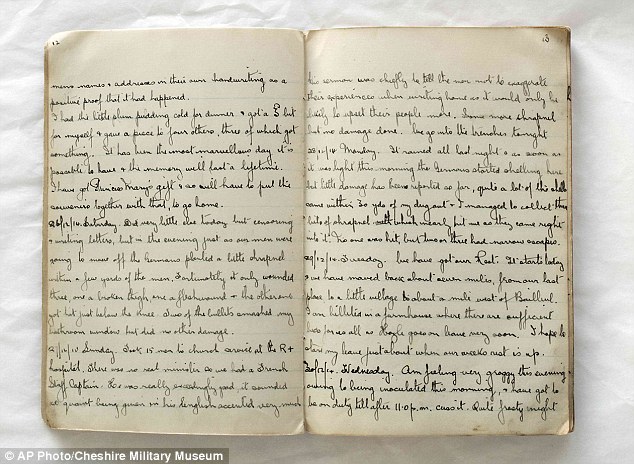 12
men's names & addresses in their own handwriting as a
positive proof that it had happened.
I had the little plum pudding cold for dinner & got a bit
for myself & gave a piece to four others, three of which got
something. It has been the most marvellous day it is
possible to have & the memory will last a lifetime.
I have got Princess Mary's gift & so will have to put the
souvenirs together with that, to go home.
26/12/14. Saturday. Did very little else today but censoring
& writing letters, but in the evening just as our men were
going to move off the Germans planted a little shrapnel
within a few yards of the men. Fortunately it only wounded
three, one a broken thigh, one a flesh wound & the other one
got hit just below the knee. Two of the bullets smashed my
bedroom window but did no other damage.
27/12/14 Sunday. Took 15 men to church service at the R+
hospital. There was no real minister so we had a French
Staff Captain. He was really exceedingly good, it sounded
quaint being given in his English accented very much
13
his sermon was chiefly to tell the men not to exaggerate
their experiences when writing home as it would only be
likely to upset their people more. Some more shrapnel
but no damage done. We go into the trenches tonight
28/12/14 Monday. It rained all last night & as soon as
it was light this morning the Germans started shelling here
but little damage has been reported so far, quite a lot of the shells
came within 30 yds of my dug out & I managed to collect three
bits of shrapnel which nearly hit me as they came right
into it. No one was hit, but two or three had narrow escapes.
29/12/14. Tuesday. We have got our Rest. It starts today
& we have moved back about seven miles, from our last
place to a little village to about a mile west of Bailleul.
I am billeted in a farmhouse where there are sufficient
for us all as Hoyle goes on leave very soon. I hope to
start my leave just about when our weeks rest is up.
30/12/14. Wednesday. Am feeling very groggy this evening
owing to being inoculated this morning, & have got to
be on duty till after 11.0 p.m. cuss it. Quite frosty night
© AP Photo/Cheshire Military Museum